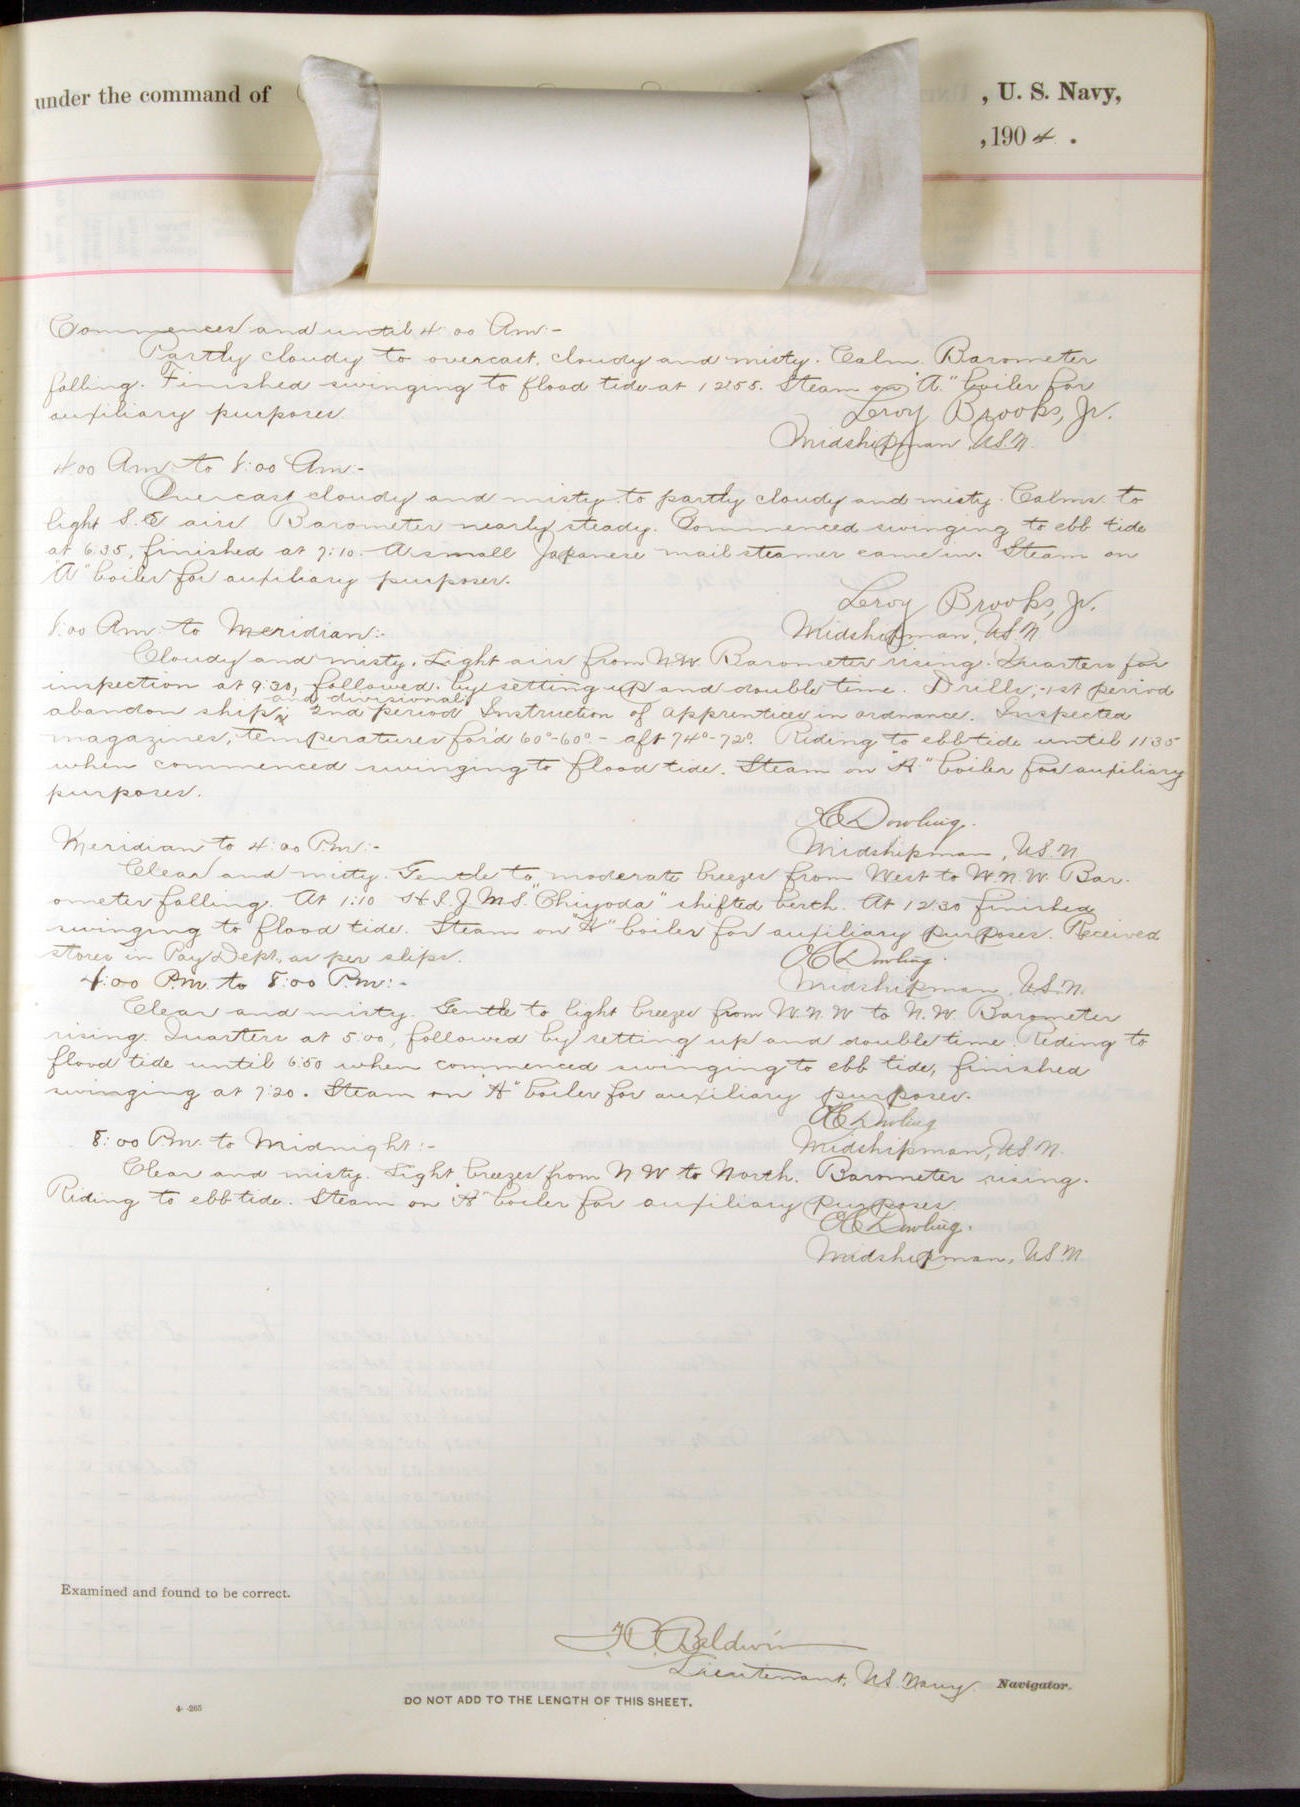 under the command of , U. S. Navy,
, 1904.
Commences and until 4:00 Am:-
Partly cloudy to overcast, cloudy and misty. Calm. Barometer
falling. Finished swinging to flood tide at 12:55. Steam on "A" boiler for
auxiliary purposes.
Leroy Brooks, Jr.
Midshipman, U.S.N.
4:00 Am: to 8:00 Am:-
Overcast cloudy and misty to partly cloudy and misty. Calms to
light S.E airs Barometer nearly steady. Commenced swinging to ebb tide
at 6:35, finished at 7:10. A small Japanese mail steamer came in. Steam on
"A" boiler for auxiliary purposes.
Leroy Brooks, Jr.
8:00 Am: to Meridian:-
Midshipman, U.S.N
Cloudy and misty. Light airs from N.W. Barometer rising. Quarters for
inspection at 9:30, followed by setting up and double time. Drills,- 1st period
and divisional;
abandon ship, 2nd period Instruction of apprentices in ordnance. Inspected
magazines, temperatures for'd 60°-60°- aft 74°-72°. Riding to ebb tide until 11:35
when commenced swinging to flood tide. Steam on "A" boiler for auxiliary
purposes.
Dowling.
Midshipman, U.S.N
Meridian to 4:00 P.m:-
Clear and misty. Gentle to moderate breezes from West to W.N.W. Bar-
ometer falling. At 1:10 H.I.J.M.S. "Chiyoda" shifted berth. At 12:30 finished
swinging to flood tide. Steam on "A" boiler for auxiliary purposes. Received
stores in Pay Dept. as per slips.
Dowling.
Midshipman, U.S.N.
4:00 P.m. to 8:00 P.m:-
Clear and misty. Gentle to light breezes from W.N.W to N.W. Barometer
rising. Quarters at 5:00, followed by setting up and double time. Riding to
flood tide until 6:50 when commenced swinging to ebb tide, finished
swinging at 7:20. Steam on "A" boiler for auxiliary purposes.
Dowling
Midshipman, U.S.N.
8:00 P.m. to Midnight:-
Clear and misty. Light breezes from N W to North. Barometer rising.
Riding to ebb tide. Steam on "A" boiler for auxiliary purposes.
Dowling.
Midshipman, U.S.N.
Examined and found to be correct.
Baldwin
Lieutenant, U.S. Navy Navigator.
DO NOT ADD TO THE LENGTH OF THIS SHEET.
4--265